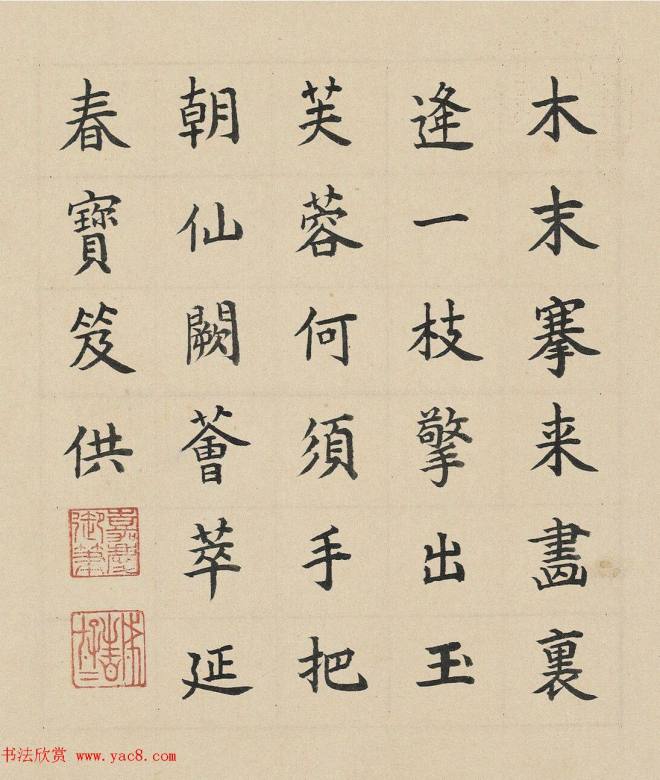 木末搴来畵裏
逢一枝擎出玉
芙蓉何須手把
朝仙闕薈萃延
春寶笈供
嘉慶御筆
书法欣赏 www.yac8.com